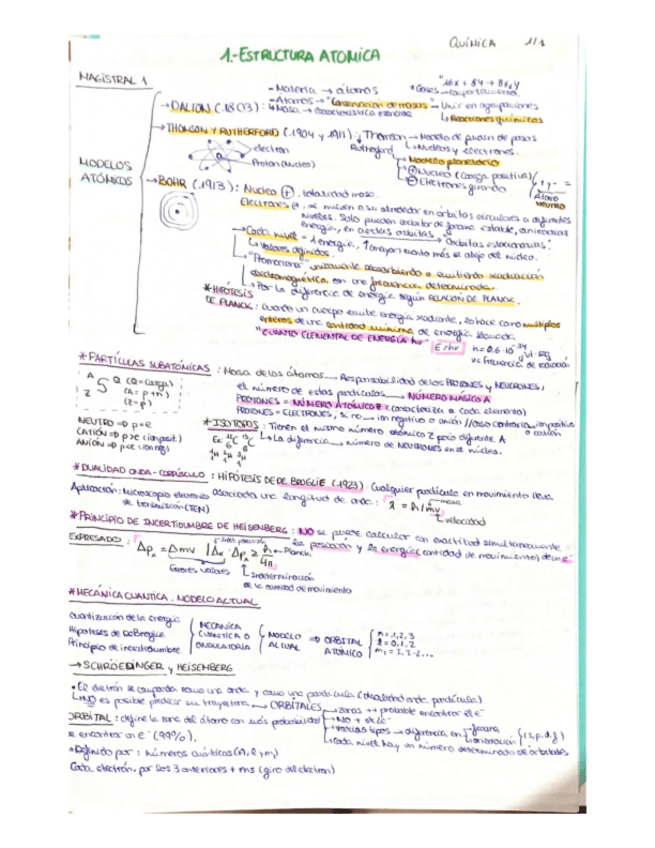 QUÍMICA 1/1
1.-ESTRUCTURA ATOMICA
MAGISTRAL 1
-Materia → átomos
-Atomos → "Conservación de masas" → Unir en agrupaciones
→ DALTON (1803): Masa → característica esencial
↳ Reacciones químicas
→ THOMSON Y RUTHERFORD (1904 y 1911): Thomson → Modelo de pudin de pasas
Rutherford ↳ Núcleos y electrones.
electrón
Proton (Nucleo)
Modelo planetario
⊕ Nucleo (carga positiva)
⊖ Electrones girando
Átomo NEUTRO
MODELOS ATÓMICOS
→ BOHR (1913): Nucleo ⊕, totalidad masa.
Electrones ⊖, se mueven a su alrededor en órbitas circulares a diferentes
niveles. Solo pueden orbitar de forma estable, sin radiar
energía, en ciertas órbitas → Orbitas estacionarias.
→ Cada nivel = 1 energía, ↑ mayor cuanto más se aleje del núcleo.
↳ Valores definidos.
→ "Promocionar" únicamente absorbiendo o emitiendo radiación
electromagnética con una frecuencia determinada.
↳ Por la diferencia de energía según RELACIÓN DE PLANCK.
*HIPÓTESIS DE PLANCK: Cuando un cuerpo emite energía radiante, lo hace como múltiplos
enteros de una cantidad mínima de energía llamada
"CUANTO ELEMENTAL DE ENERGÍA hν" E=hν
ν= Frecuencia de radiación
*PARTÍCULAS SUBATÓMICAS: Masa de los átomos → Responsabilidad de los PROTONES y NEUTRONES,
el número de estas partículas → NÚMERO MÁSICO A
PROTONES = NÚMERO ATÓMICO Z (caracteriza a cada elemento)
PROTONES = ELECTRONES, si no → ion negativo o anión // caso contrario, ion positivo o catión
A S Q (Q=carga)
Z (A= p+n)
(Z=p)
NEUTRO ⇒ p=e
CATIÓN ⇒ p>e (ion posit.)
ANIÓN ⇒ p<e (ion neg)
*ISOTOPOS: Tienen el mismo número atómico Z pero diferente A
↳ La diferencia → número de NEUTRONES en el núcleo.
*DUALIDAD ONDA-CORPÚSCULO: HIPÓTESIS DE DE BROGLIE (1923): Cualquier partícula en movimiento lleva
asociada una longitud de onda: λ = h/mv
masa
velocidad
Aplicación: Microscopio electrónico de transmisión (TEM)
*PRINCIPIO DE INCERTIDUMBRE DE HEISENBERG: NO se puede calcular con exactitud simultáneamente
la posición y la energía (cantidad de movimiento) de un e⁻
EXPRESADO: Δpx = Δmv | Δx · Δpx ≥ h/4π ← Planck
Errores valores
Indeterminación de la cantidad de movimiento
*MECÁNICA CUANTICA. MODELO ACTUAL
Cuantización de la energía
Hipótesis de DeBroglie
Principio de incertidumbre
MECANICA CUANTICA O ONDULATORIA
MODELO ACTUAL ⇒ ORBITAL ATÓMICO
n=1,2,3
l=0,1,2
→ SCHRÖEDINGER y HEISENBERG
• El electrón se comporta como una onda y como una partícula (dualidad onda partícula)
↳ NO es posible predecir su trayectoria → ORBITALES → zonas ++ probable encontrar el e⁻
ORBITAL: define la zona del átomo con más probabilidad
encontrar un e⁻ (99%).
→ Varios tipos → diferencia en forma, orientación (s,p,d,f)
↳ Cada nivel hay un número determinado de orbitales
Definido por: números cuánticos (n, l y m)
Cada electrón, por los 3 anteriores + ms (giro del electrón)